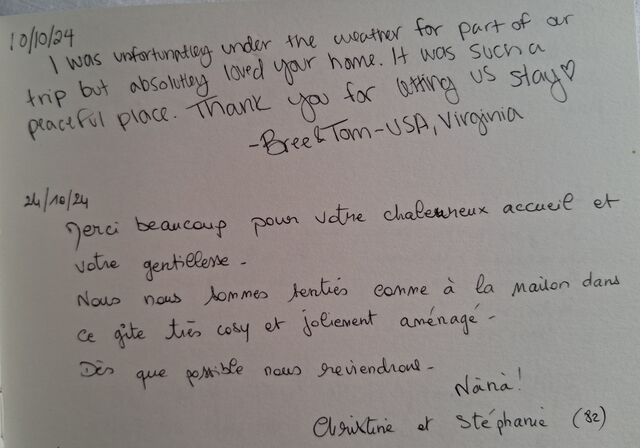 10/10/24
I was unfortunatley under the weather for part of our
trip but absolutley loved your home. It was such a
peaceful place. Thank you for letting us stay♡
-Bree & Tom-USA, Virginia
24/10/24
Merci beaucoup pour votre chaleureux accueil et
votre gentillesse.
Nous nous sommes senties comme à la maison dans
ce gîte très cosy et joliement aménagé.
Dès que possible nous reviendrons.
Christine et Stéphanie (82)